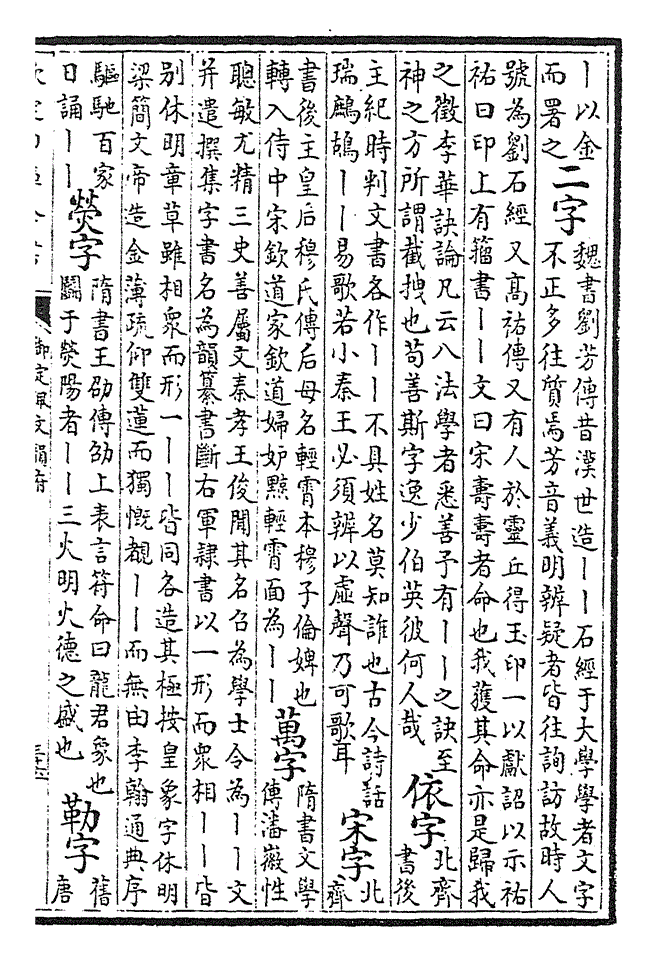 丨以金
而署之
二字
魏書劉芳傳昔漢世造丨丨石經于大學學者文字
不正多往質焉芳音義明辨疑者皆往詢訪故時人
號為劉石經又髙祐傳又有人於靈丘得玉印一以獻詔以示祐
祐曰印上有籀書丨丨文曰宋壽壽者命也我獲其命亦是歸我
之徵李華訣論凡云八法學者悉善予有丨丨之訣至
神之方所謂截拽也苟善斯字逸少伯英彼何人哉
依字
北齊
書後
主紀時判文書各作丨丨不具姓名莫知誰也古今詩話
瑞鷓鴣丨丨易歌若小秦王必須雜以虛聲乃可歌耳
宋字
北
齊
書後主皇后穆氏傳后母名輕霄本穆子倫婢也
轉入侍中宋欽道家欽道婦妒黥輕霄面為丨丨
萬字
隋書文學
傳潘徽性
聰敏尤精三史善屬文秦孝王俊聞其名召為學士令為丨丨文
并遣撰集字書名為韻纂書斷右軍隸書以一形而衆相丨丨皆
別休明章草雖相衆而形一丨丨皆同各造其極按皇象字休明
梁簡文帝造金薄疏仰雙蓮而獨慨覩丨丨而無由李翰通典序
驅馳百家
日誦丨丨
熒字
隋書王劭傳劭上表言符命曰龍君象也
鬬于熒陽者丨丨三火明火德之盛也
勒字
舊
唐
御定佩文韻府